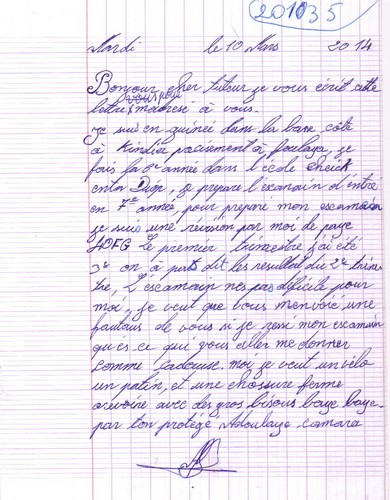 201035
Mardi le 10 Mars 2014
Bonjour cher tuteur je vous écrit cette
vous pour
lettre madresé à vous.
Je suis en guinée dans la base côté
à Kindia précisément à foulaya, je
fais la 6e année dans l'école cheick
anta Diop, je prepare l'examain d'entré
en 7e année, pour préparé mon escamain
je suis une révision par moi de paye
40FG Le premier trimestre j'ai été
3e on à pas dit les resultat du 2e trime
tre, L'escamain nés pas difficile pour
moi, je veut que vous menvoié une
fautaus de vous si je réusi mon escamain
qu'es ce qui vous aller me donner
comme cadeause. moi je veut un vélo
un patin, et une chossure ferme
orevoire avec des gros bisous baye baye
par ton protégé Abdoulaye camara